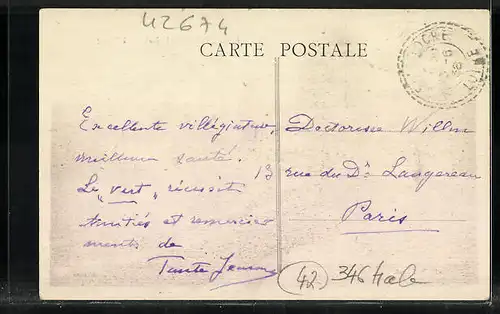 42674
CARTE POSTALE
Excellente villégiature,
meilleure santé.
Le "vert" réussit
Amitiés et remercie
ments de
Tante Jeanne
Doctoresse Willm
13 rue du Dr Lancereau
Paris
42
346
LOIRE